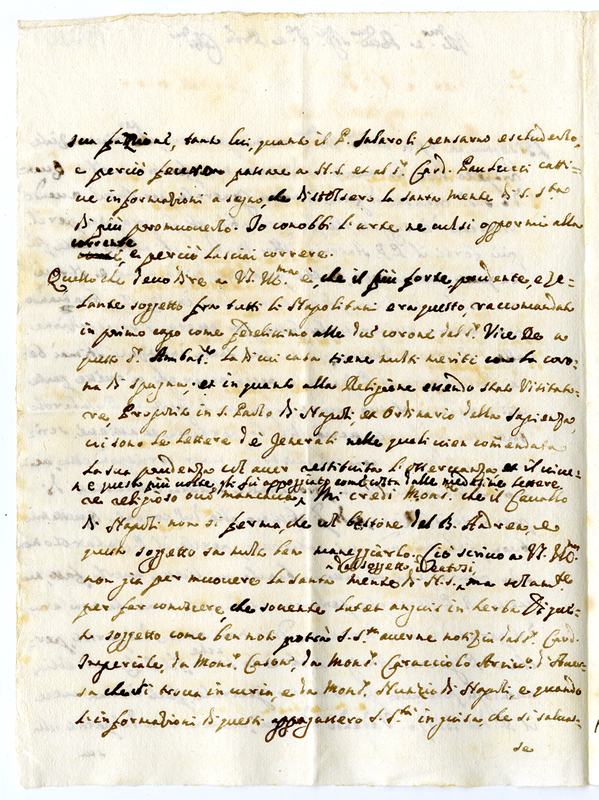 sua fazione, tanto lui, quanto il P. Salaroli pensarno escluderlo,
e perciò fecero passare a S.S. et al S.r Card. Paulucci catti=
ve informazioni a segno, che distolsero la santa mente di S. S.tà
di più promuoverlo. Io conobbi l'arte ne volsi oppormi alla
corrente
e perciò lasciai correre.
Quello che devo dire a V.S. Ill.ma è, che il più forte, prudente, e ze=
lante soggetto fra tutti li Napolitani era questo, raccomandato
in primo capo come fedelissimo alle due corone dal S.r Vice Re a
questo S.r Ambas.re la di cui casa tiene molti meriti con la coro=
na di Spagna, et in quanto alla Religione essendo stato Visitato=
re, Preposito in S. Paolo di Napoli et Ordinario della Sapienza,
vi sono le lettere de Generali nelle quali vien comendata
la sua prudenza col aver restituita l'osservanza et il vive=
e questo più volte, gli fu appoggiato con le medesime lettere
re religioso ove mancava, Mi credi Mons.r che il Cavallo
di Napoli non si ferma, che col bastone del B. Andrea, e
questo soggetto sa molto ben maneggiarlo. Ciò scrivo a V.S. Ill.ma
al soggetto
non già per muovere la santa mente di S.S. ma solam.te
per far conoscere, che sovente latet anguis in herba. Di ques=
to soggetto come ben noto potrà S. S.tà averne notizia dal S.r Card.
Imperiale, da Mons.r Casoni, da Mons.r Caracciolo Arciv.o d'Aver=
sa che si trova in curia, e da Mons.r Nunzio di Napoli, e quando
l'informazioni di questi appagassero S. S.tà in guisa, che si salvas=
se